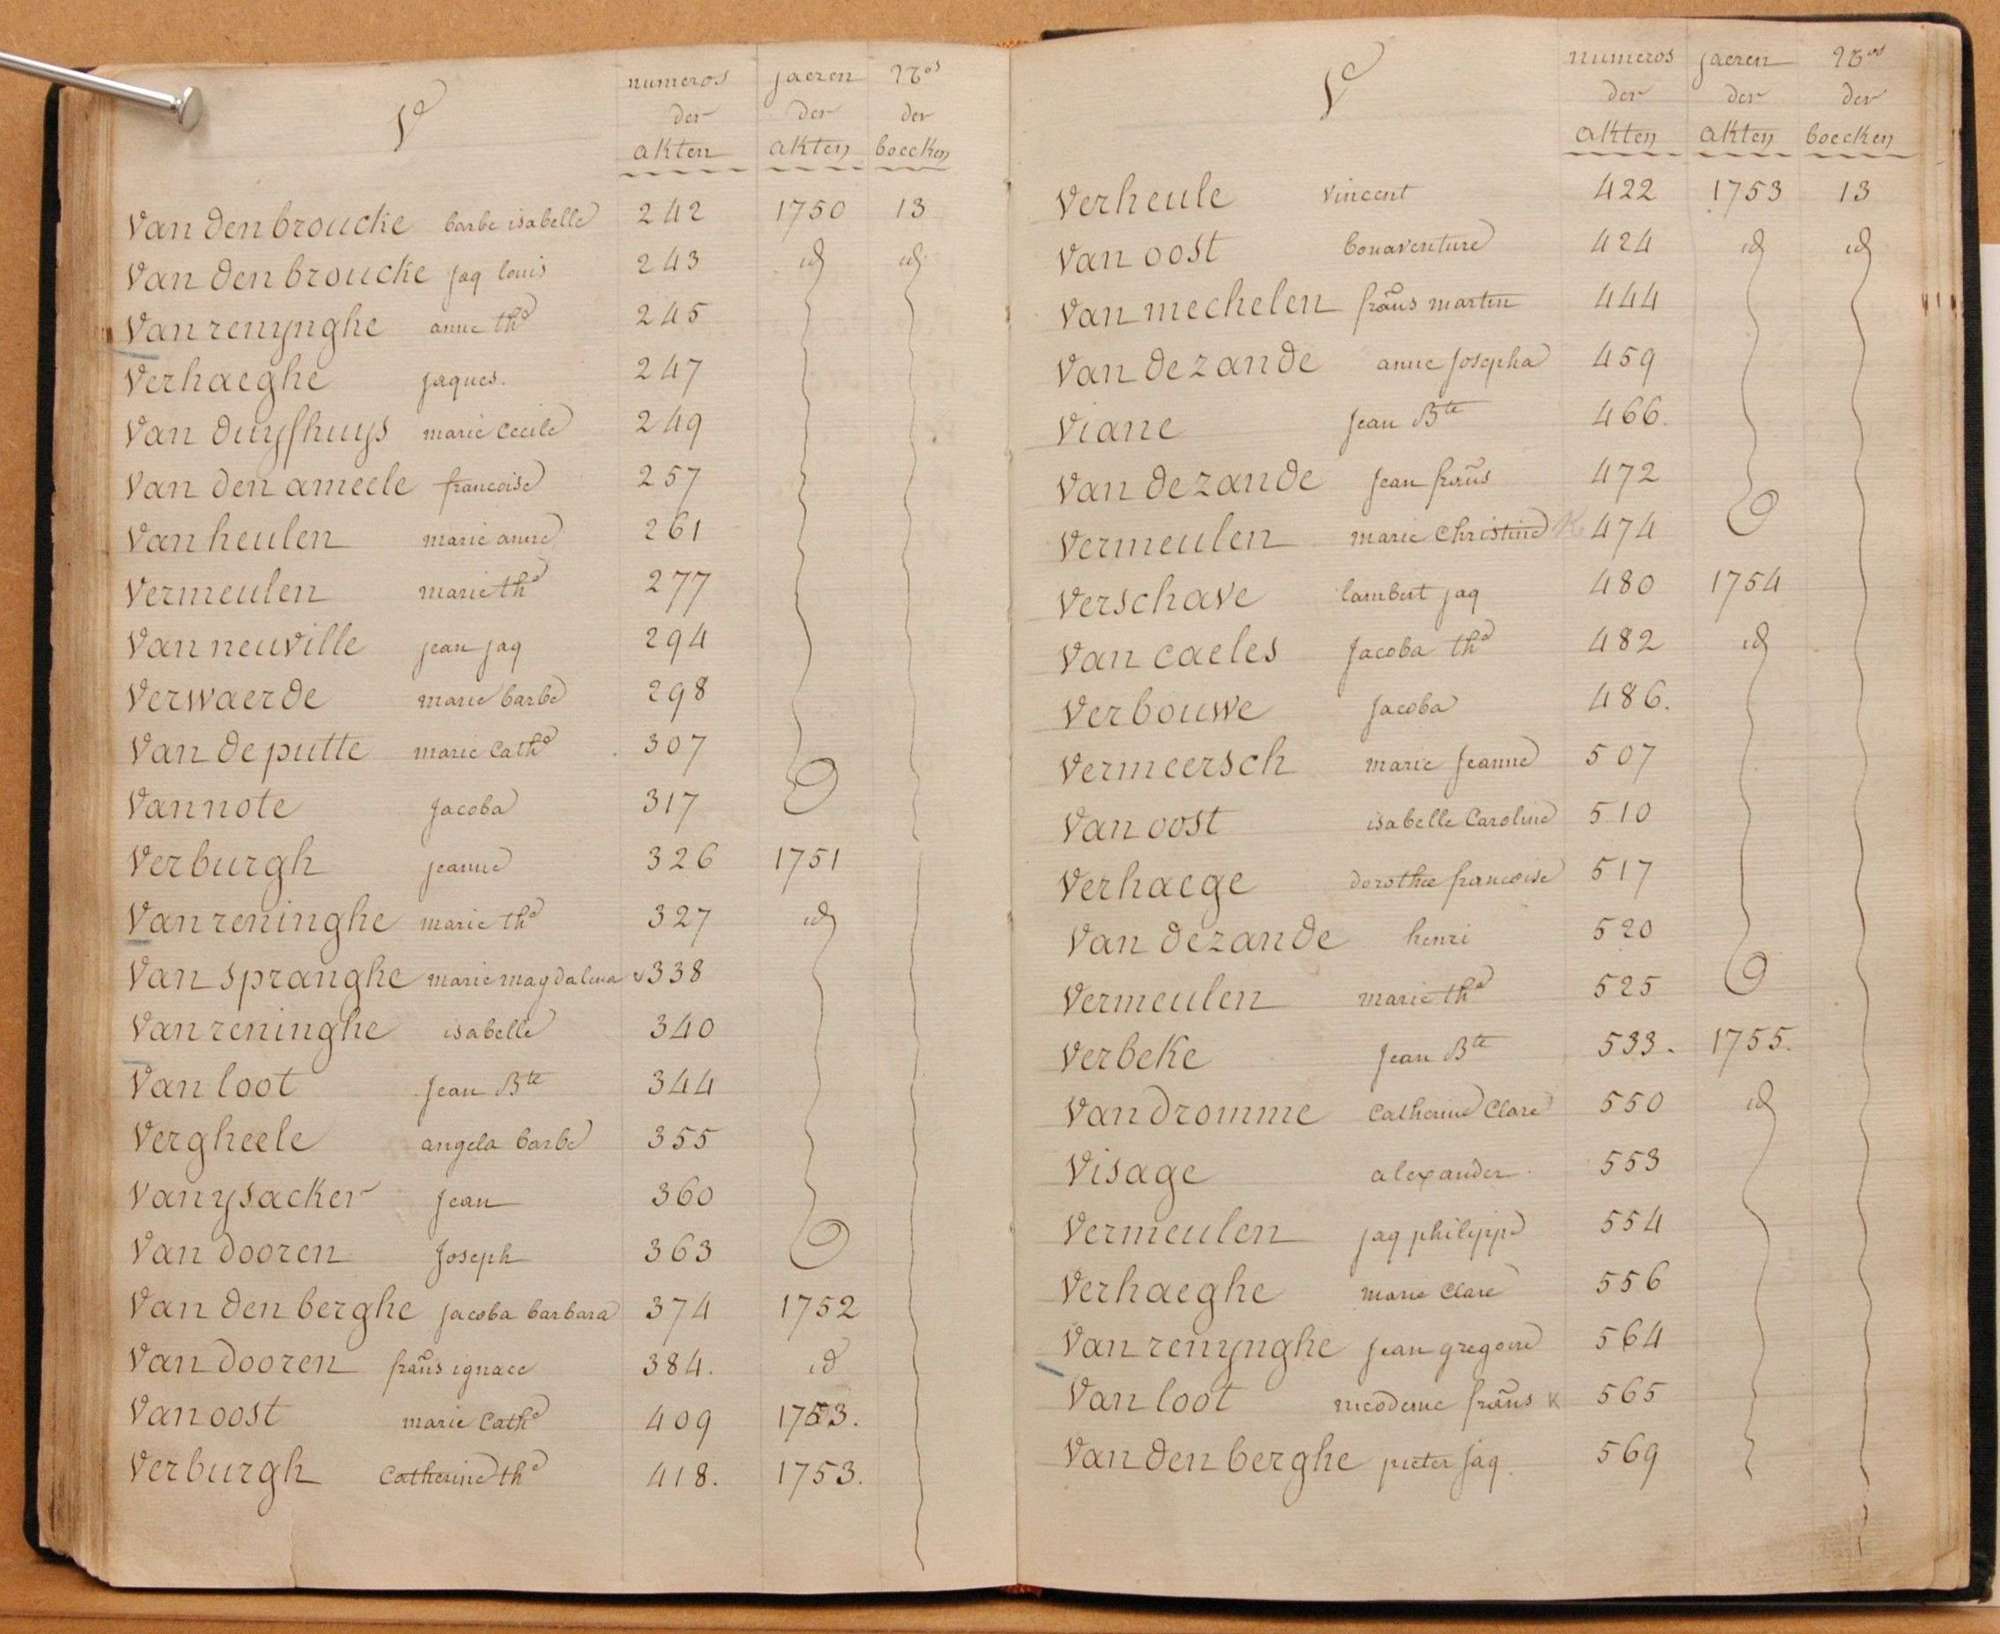 V numeros jaeren Nros
der der der
akten akten boecken
Van den broucke barbe isabelle 242 1750 13
Van den broucke jaq louis 243 id id
Van renynghe anne the 245
Verhaeghe jaques. 247
Van duyfhuys marie cecile 249
Van den ameele francoise 257
Van heulen marie anne 261
Vermeulen marie the 277
Van neuville jean jaq 294
Verwaerde marie barbe 298
Van de putte marie cathe 307
Vannote jacoba 317
Verburgh jeanne 326 1751
Van reninghe marie the 327 id
Van spranghe marie magdalena 338
Van reninghe isabelle 340
Van loot jean Bte 344
Vergheele angela barbe 355
Van ysacker jean 360
Van dooren joseph 363
Van den berghe jacoba barbara 374 1752
Van dooren frans ignace 384. id
Van oost marie cathe 409 1753.
Verburgh catherine the 418. 1753.
V numeros jaeren Nros
der der der
akten akten boecken
Verheule vincent 422 1753 13
Van oost bonaventure 424 id id
Van mechelen frans martin 444
Van dezande anne josepha 459
Viane jean Bte 466.
Van dezande jean frans 472
Vermeulen marie christine 474
Verschave lambert jaq 480 1754
Van caeles jacoba the 482 id
Verbouwe jacoba 486.
Vermeersch marie jeanne 507
Van oost isabelle caroline 510
Verhaege dorothee francoise 517
Van dezande henri 520
Vermeulen marie the 525
Verbeke jean Bte 533. 1755.
Van dromme catherine clare 550 id
Visage alexander 553
Vermeulen jaq philippe 554
Verhaeghe marie clare 556
Van renynghe jean gregoire 564
Van loot nicodeme frans 565
Van den berghe pieter jaq 569